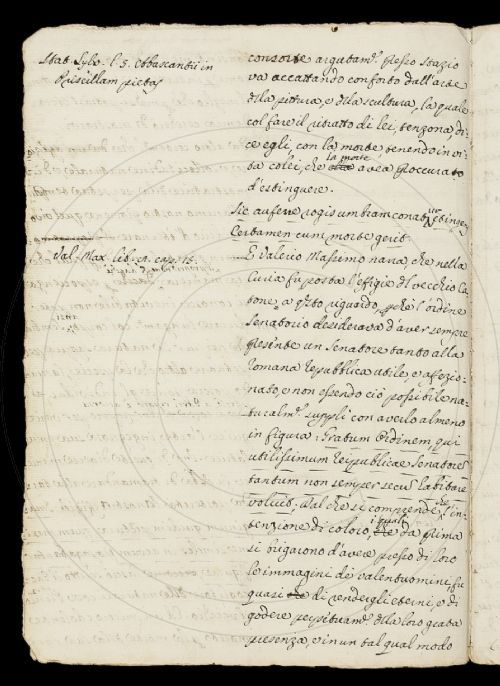 Stat. Sylv. l. 5. Abbascantii in
Priscillam pietas
consorte argutam.e presso Stazio
va accattando conforto dall'arte
della pittura, e della scultura, la quale
col fare il ritratto di lei, tenzona di-
ce egli, con la morte tenendo in vi-
ta colei, che la morte avea procurato
d'estinguere.
Sic auferre rogis umbram conatur, et ingens
Certamen cum morte gerit.
Val. Max. lib. 8. cap. 15.
E Valerio Massimo narra che nella
Curia fu posta l'effigie del vecchio Ca-
tone, a questo riguardo, perchè l'ordine
Senatorio desiderava d'aver sempre
presente un Senatore tanto alla
Romana Repubblica utile e afezio-
nato, e non essendo ciò possibile na-
turalm.e supplì con averlo almeno
in figura: Gratum Ordinem, qui
utilissimum Reipublicae Senatorem
tantum non semper secum habitare
voluit. Dal che si comprende che l'in-
tenzione di coloro, i quali da prima
si brigarono d'avere presso di loro
le immagini de' valentuomini, fu
quasi di rendergli eterni, e di
godere perpetuam.e della loro grata
presenza, e in un tal qual modo